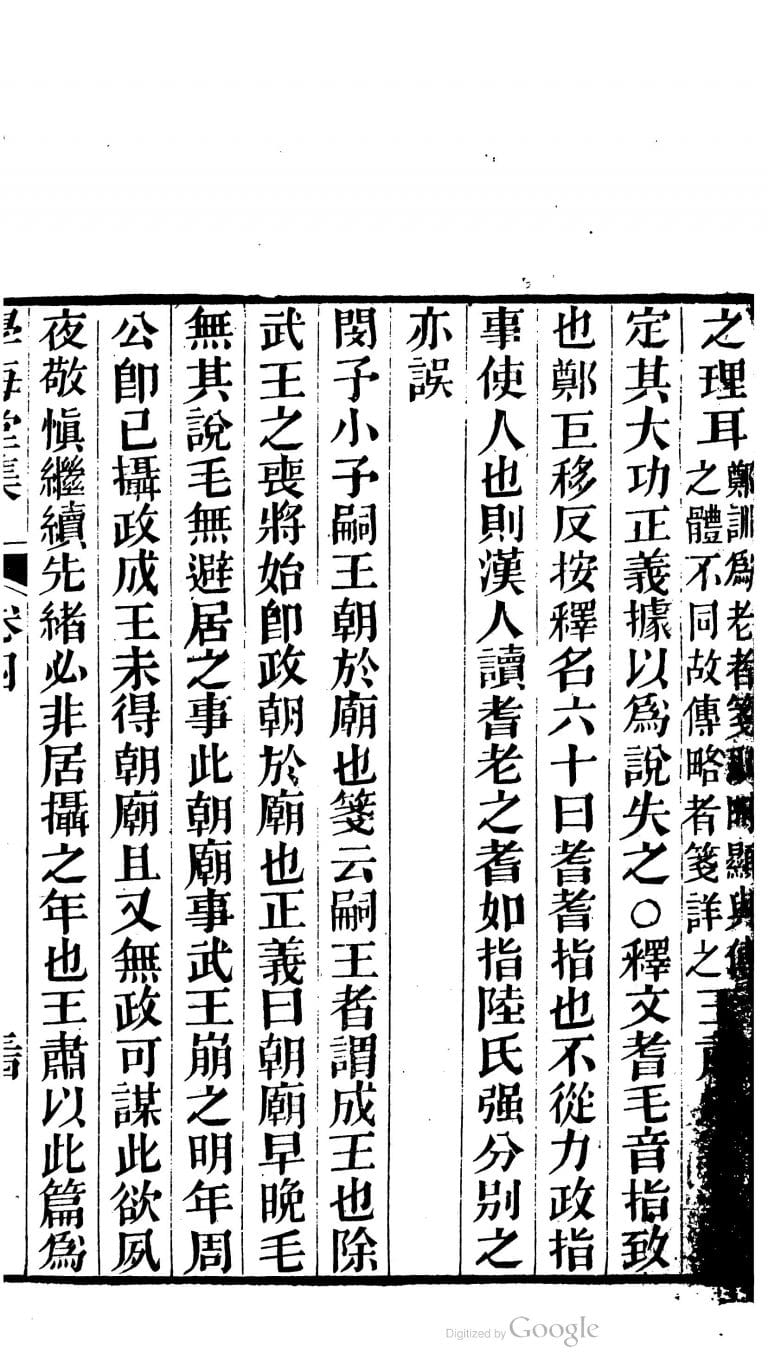 之理耳鄭訓爲老者箋
之體不同故傳略者箋詳之王肅
定其大功正義據以爲說失之○釋文耆毛音指致
也鄭巨移反按釋名六十曰耆耆指也不從力政指
事使人也則漢人讀耆老之耆如指陸氏强分別之
亦誤
閔予小子嗣王朝於廟也箋云嗣王者謂成王也除
武王之喪將始卽政朝於廟也正義曰朝廟早晚毛
無其說毛無避居之事此朝廟事武王崩之明年周
公卽已攝政成王未得朝廟且又無政可謀此欲夙
夜敬愼繼續先緒必非居攝之年也王肅以此篇爲
學海堂集 卷四
Digitized by Google